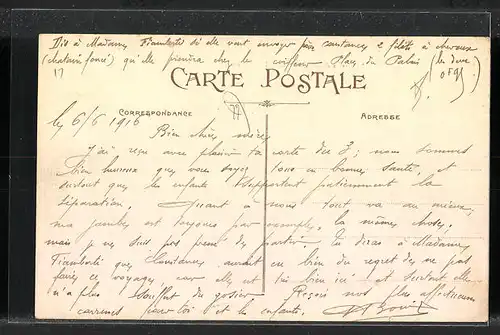 Dis à Madame Tiamberti si elle veut envoyer par Constance 2 filets à cheveux
(chatain foncé) qu'elle prendra chez le coiffeur Place du Palais (les deux
CARTE POSTALE
CORRESPONDANCE
ADRESSE
le 6/6 1916
Bien chère
J'ai reçu avec plaisir ta carte du 3; nous sommes
bien heureux que vous soyez tous en bonne santé, et
surtout que les enfants supportent patiemment la
séparation. Quant à nous tout va au mieux,
ma jambe est toujours par exemple, la même chose,
mais je ne suis pas de partir. Tu diras à Madame
Tiamberti que Constance aurait eu bien du regret de ne pas
faire ce voyage, car elle est très bien ici et surtout elle
n'a plus souffert du gosier Reçois nos plus affectueuses
caresses pour toi et les enfants.